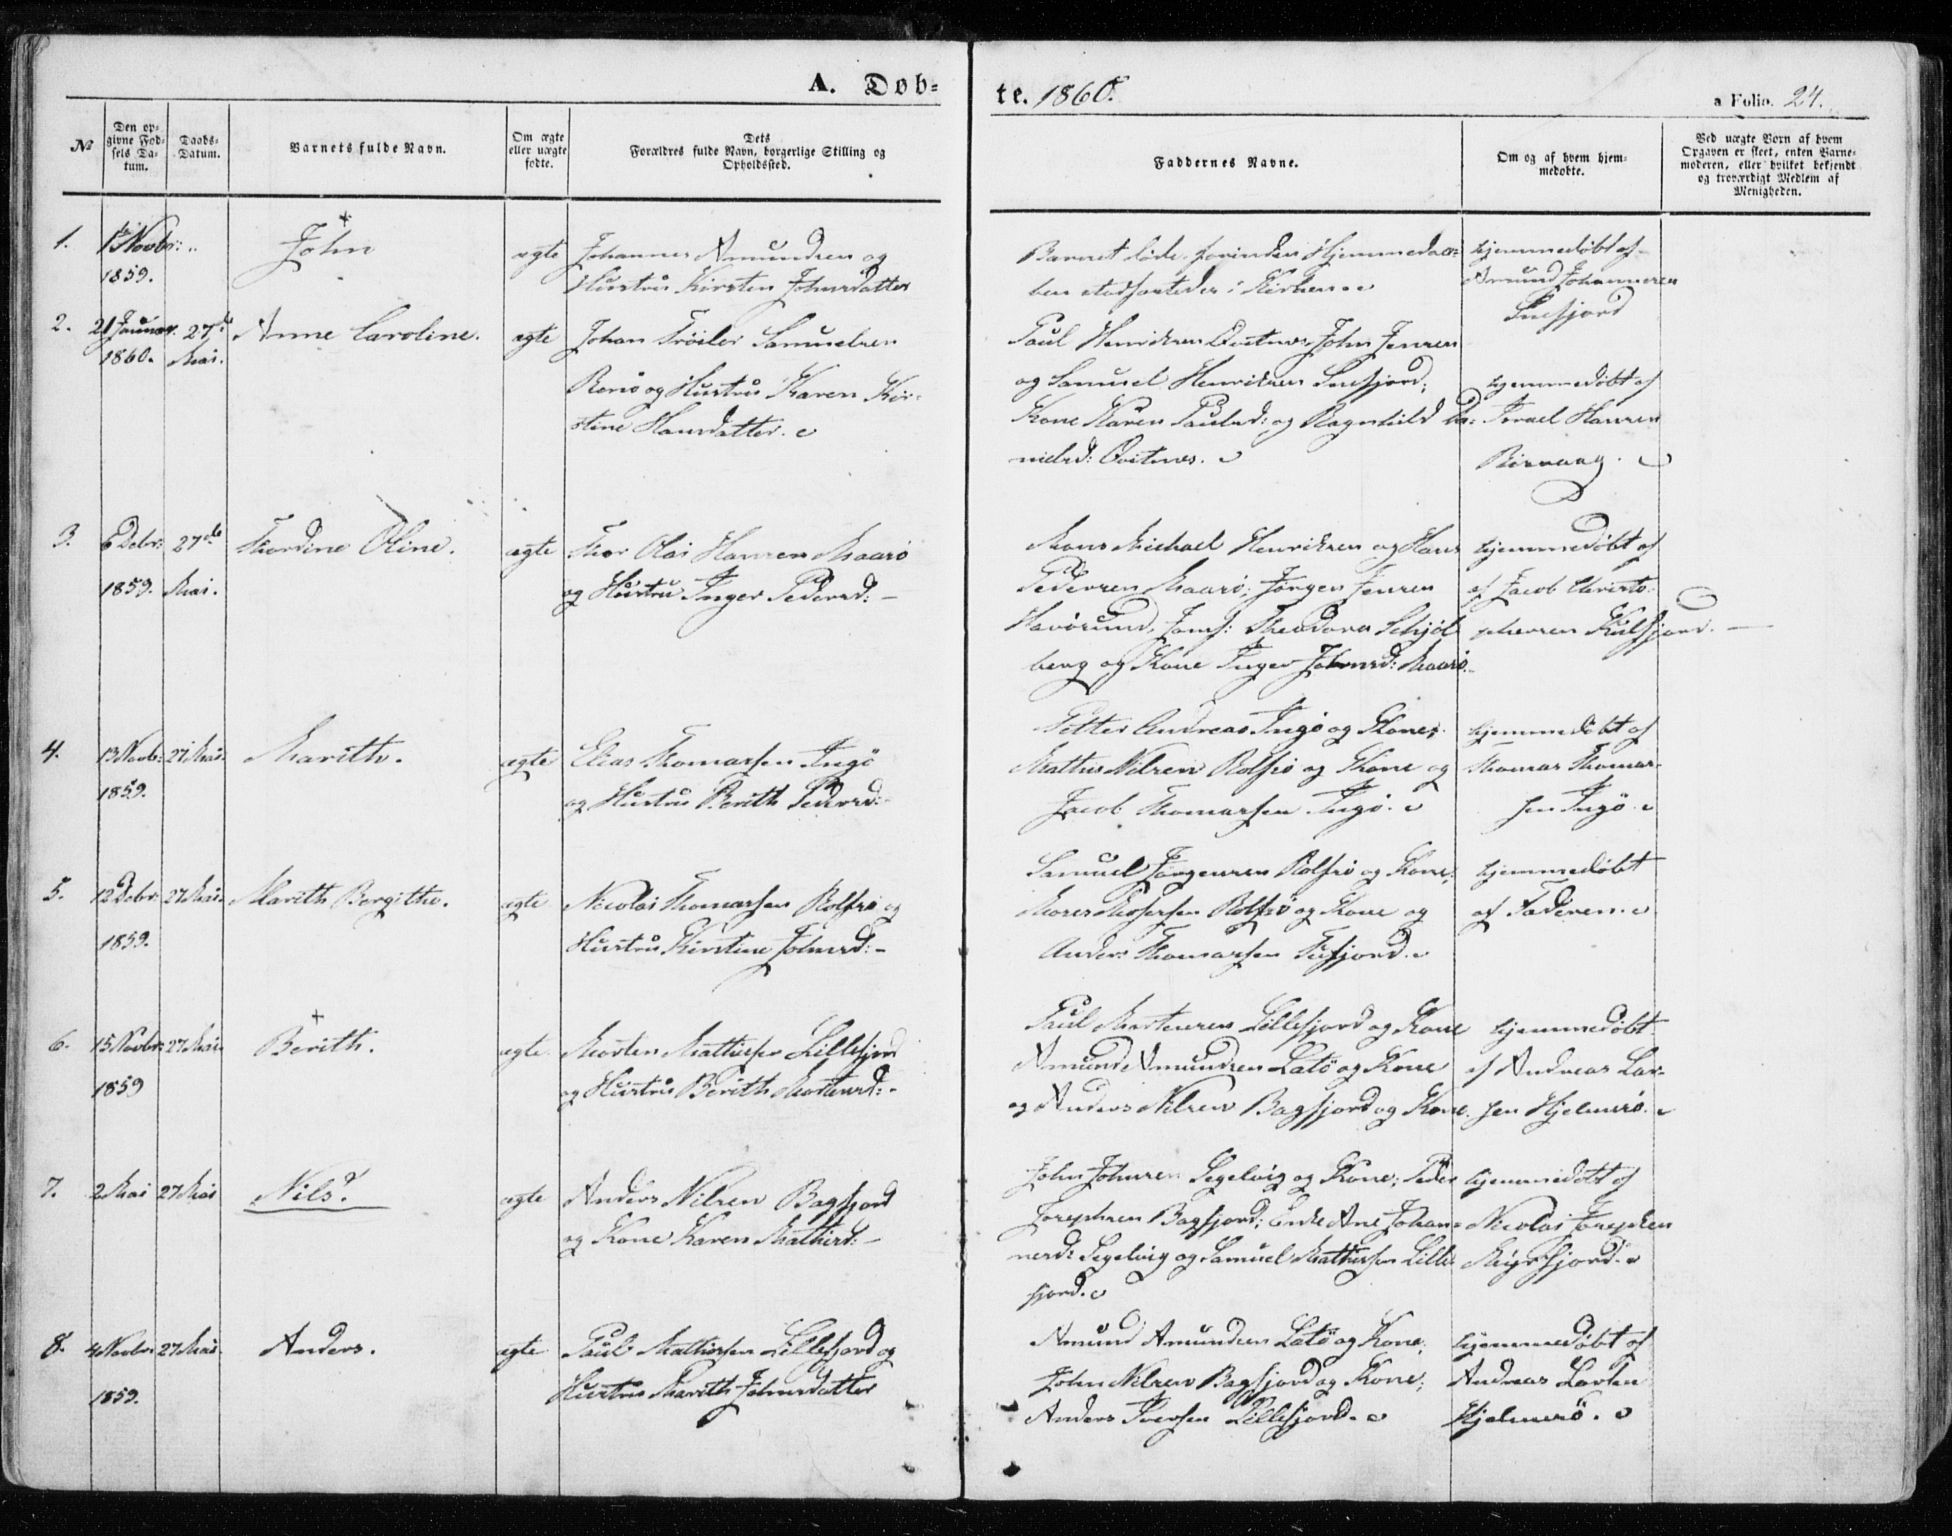 A. Døb=
te. 1860.
a Folio. 24.
No
Den op=
givne Fød=
sels Da=
tum.
Daabs=
Datum.
Barnets fulde Navn.
Om ægte
eller uægte
fødte.
Dets
Forældres fulde Navn, borgerlige Stilling og
Opholdssted.
Faddernes Navne.
Om og af hvem hjem=
medøbte.
Ved uægte Børn af hvem
Opgaven er skeet, enten Barne=
moderen, eller hvilket bekjendt
og troværdigt Medlem af
Menigheden.
1.
1 Novbr:
1859.
John
ægte
Johannes Amundsen og
Hustru Kirsten Johnsdatter
Barnet døde forinden Hjemmedaa=
ben stadfæstedes i Kirken.
hjemmedøbt af
Amund Johannesen
Snefjord
2.
21 Januar
1860.
27de
Mai.
Anne Caroline.
ægte
Johan Trøiler Samuelsen
og Hustru Karen Kir=
stine Hansdatter.
Paul Henriksen Qvitnes, John Jensen
og Samuel Henriksen Snefjord;
Kone Karen Paulsd: og Ragnhild Da=
nielsd: Qvitnes.
hjemmedøbt af
Israel Hansen
3.
6 Decbr:
1859.
27de
Mai.
Thordine Oline.
ægte
Thor Olai Hansen Maasø
og Hustru Inger Pedersd: -
Mons Michael Henriksen og Hans
Pedersen Maasø; Jørgen Jensen
Havøsund, Jomf: Theodora Schjøl
berg og Kone Inger Johnsd: Maasø.
hjemmedøbt af
af Jacob Christo=
phersen Kulfjord. -
4.
13 Novbr:
1859.
27 Mai.
Marith.
ægte
Elias Thomassen Ingø
og Hustru Berith Pedersd: -
Petter Andreas Ingø og Kone;
Mattis Nilsen Rolfsø og Kone og
Jacob Thomassen Ingø.
hjemmedøbt af
Thomas Thomas=
sen Ingø.
5.
12 Decbr:
1859.
27 Mai.
Marith Bergithe.
ægte
Nicolai Thomassen Rolfsø og
Hustru Kirstine Johnsd: -
Samuel Jørgensen Rolfsø og Kone;
Rolfsø og Kone og
Anders Thomassen Tufjord.
hjemmedøbt
af Faderen.
6.
15 Novbr:
1859
27 Mai.
Berith.
ægte
Morten Mathisen Lillefjord
og Hustru Berith Mortensd: -
Paul Mortensen Lillefjord og Kone
Amund Amundsen Latø og Kone
og Anders Nilsen Bagfjord og Kone.
hjemmedøbt
af Andreas Lar=
sen Hjelmsø.
7.
2 Mai
27 Mai
Nils.
ægte
Anders Nilsen Bagfjord
og Kone Karen Mathisd: -
John Johnsen Segelvig og Kone; Peder
Josephsen Bagfjord; Enke Ane Johan=
nesd: Segelvig og Samuel Mathisen Lille
fjord.
hjemmedøbt af
Nicolai Josephsen
Myrfjord.
8.
4 Novbr:
1859.
27 Mai.
Anders.
ægte
Paul Mathisen Lillefjord og
Hustru Marith Johnsdatter
Amund Amundsen Latø og Kone,
John Nilsen Bagfjord og Kone;
Anders Iversen Lillefjord.
hjemmedøbt af
Andreas Larsen
Hjelmsø.